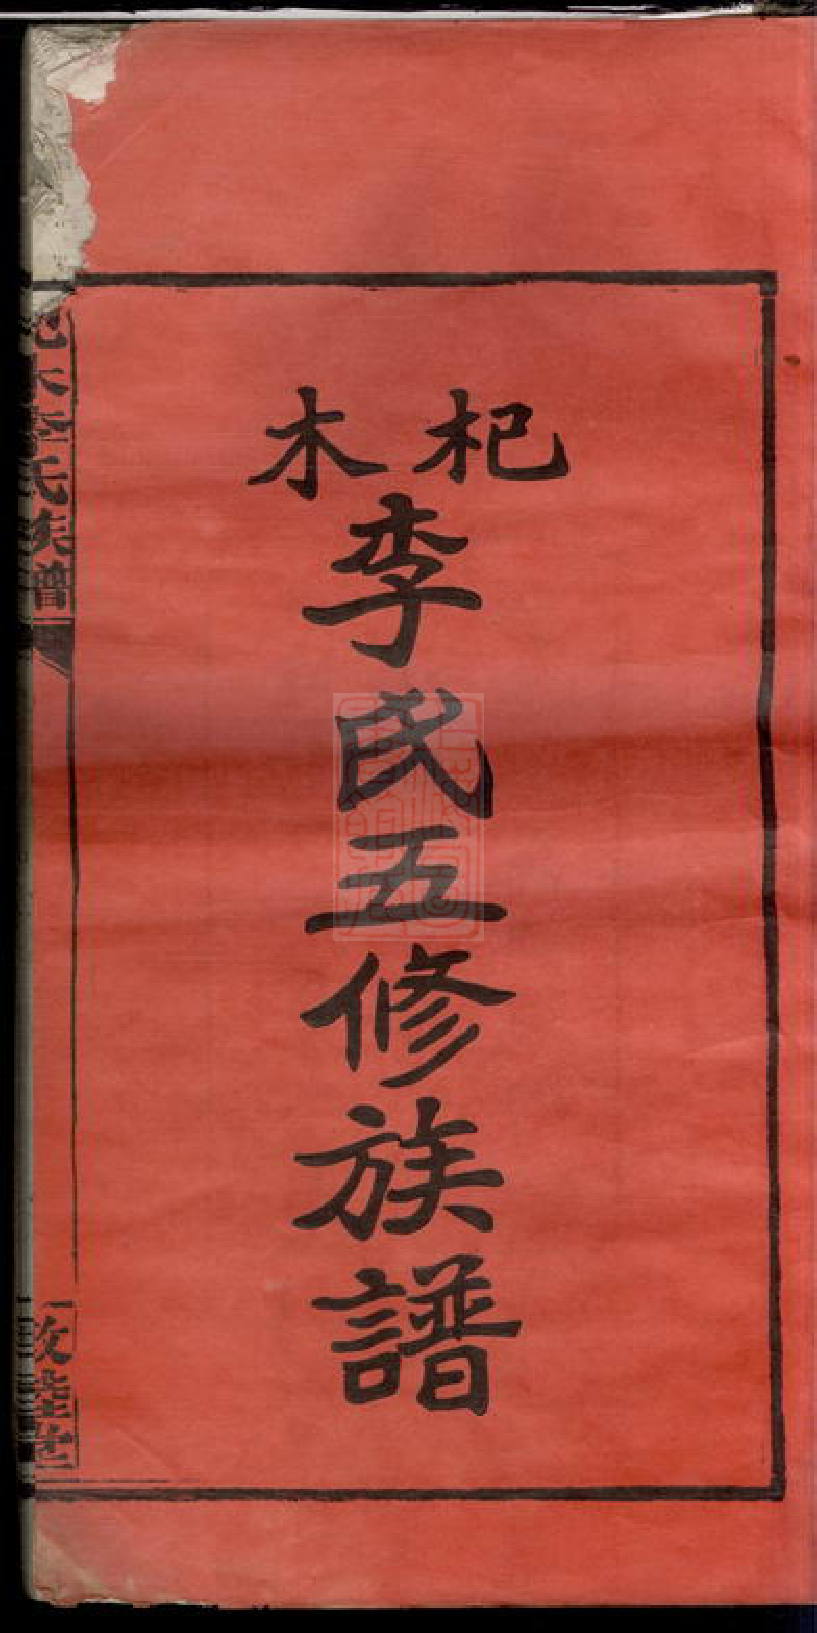 杞木
李氏五修族譜
木李氏族譜
敦睦堂